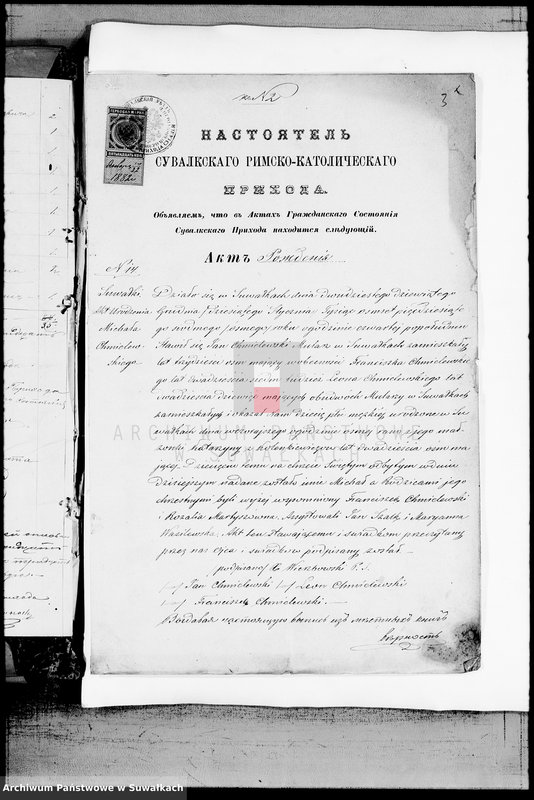 к №2
3
1882
НАСТОЯТЕЛЬ
СУВАЛКСКАГО РИМСКО-КАТОЛИЧЕСКАГО
ПРИХОДА.
Объявляемъ, что въ Актахъ Гражданскаго Состоянія
Сувалкскаго Прихода находится слѣдующій.
Актъ Рожденія
N 14
Suwałki
Akt Urodzenia
Michała
Chmielew-
skiego
Działo się w Suwałkach dnia dwudziestego dziewiątego
Grudnia /dziesiątego Stycznia/ Tysiąc ośmset pięćdziesiąte-
go siódmego /ósmego/ roku o godzinie czwartej po południu
Stawił się Jan Chmielewski Mularz w Suwałkach zamieszkały
lat trzydzieści ośm mający w obecności Franciszka Chmielewskie-
go lat dwadzieścia siedm tudzież Leona Chmielewskiego lat
dwadzieścia dziewięć mających obudwóch Mularzy w Suwałkach
zamieszkałych i okazał nam dziecię płci męzkiej urodzone w Su-
wałkach dnia wczorajszego o godzinie ósmej rano z jego mał-
żonki Katarzyny z lat dwadzieścia ośm ma-
jącej. Dziecięciu temu na chrzcie Świętym odbytym w dniu
dzisiejszym nadane zostało imie Michał a Rodzicami jego
chrzestnymi byli wyżej wspomniony Franciszek Chmielewski
i Rozalia Martyszowna, Assystowali Jan Szatz i Maryanna
Wasilewska, Akt ten stawającemu i świadkom przeczytany
przez nas Ojca i świadków podpisany został
podpisano X.
Jan Chmielewski Leon Chmielewski
Franciszek Chmielewski.
настоящую выпись изъ мѣстныхъ книгъ
вѣрность
ARCHIWUM PAŃSTWOWE
W SUWAŁKACH
Archiwum Państwowe w Suwałkach